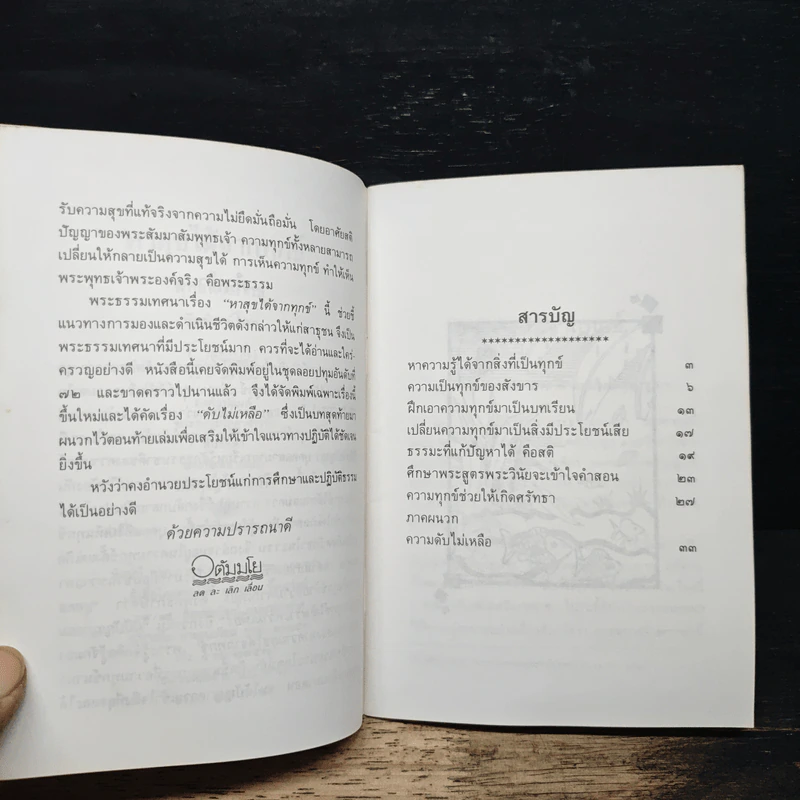 รับความสุขที่แท้จริงจากความไม่ยึดมั่นถือมั่น โดยอาศัยสติ
ปัญญาของพระสัมมาสัมพุทธเจ้า ความทุกข์ทั้งหลายสามารถ
เปลี่ยนให้กลายเป็นความสุขได้ การเห็นความทุกข์ ทำให้เห็น
พระพุทธเจ้าพระองค์จริง คือพระธรรม
พระธรรมเทศนาเรื่อง “หาสุขได้จากทุกข์” นี้ ช่วยชี้
แนวทางการมองและดำเนินชีวิตดังกล่าวให้แก่สาธุชน จึงเป็น
พระธรรมเทศนาที่มีประโยชน์มาก ควรที่จะได้อ่านและใคร่-
ครวญอย่างดี หนังสือนี้เคยจัดพิมพ์อยู่ในชุดลอยปทุมอันดับที่
๗๒ และขาดคราวไปนานแล้ว จึงได้จัดพิมพ์เฉพาะเรื่องนี้
ขึ้นใหม่และได้คัดเรื่อง “ดับไม่เหลือ” ซึ่งเป็นบทสุดท้ายมา
ผนวกไว้ตอนท้ายเล่มเพื่อเสริมให้เข้าใจแนวทางปฏิบัติได้ชัดเจน
ยิ่งขึ้น
หวังว่าคงอำนวยประโยชน์แก่การศึกษาและปฏิบัติธรรม
ได้เป็นอย่างดี
ด้วยความปรารถนาดี
อตัมมโย
ลด ละ เลิก เลื่อน
สารบัญ
*******************
หาความรู้ได้จากสิ่งที่เป็นทุกข์ ๓
ความเป็นทุกข์ของสังขาร ๖
ฝึกเอาความทุกข์มาเป็นบทเรียน ๑๓
เปลี่ยนความทุกข์มาเป็นสิ่งมีประโยชน์เสีย ๑๗
ธรรมะที่แก้ปัญหาได้ คือสติ ๑๙
ศึกษาพระสูตรพระวินัยจะเข้าใจคำสอน ๒๓
ความทุกข์ช่วยให้เกิดศรัทธา ๒๗
ภาคผนวก
ความดับไม่เหลือ ๓๓